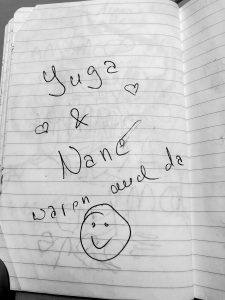 Yuga
&
Nane
waren auch da